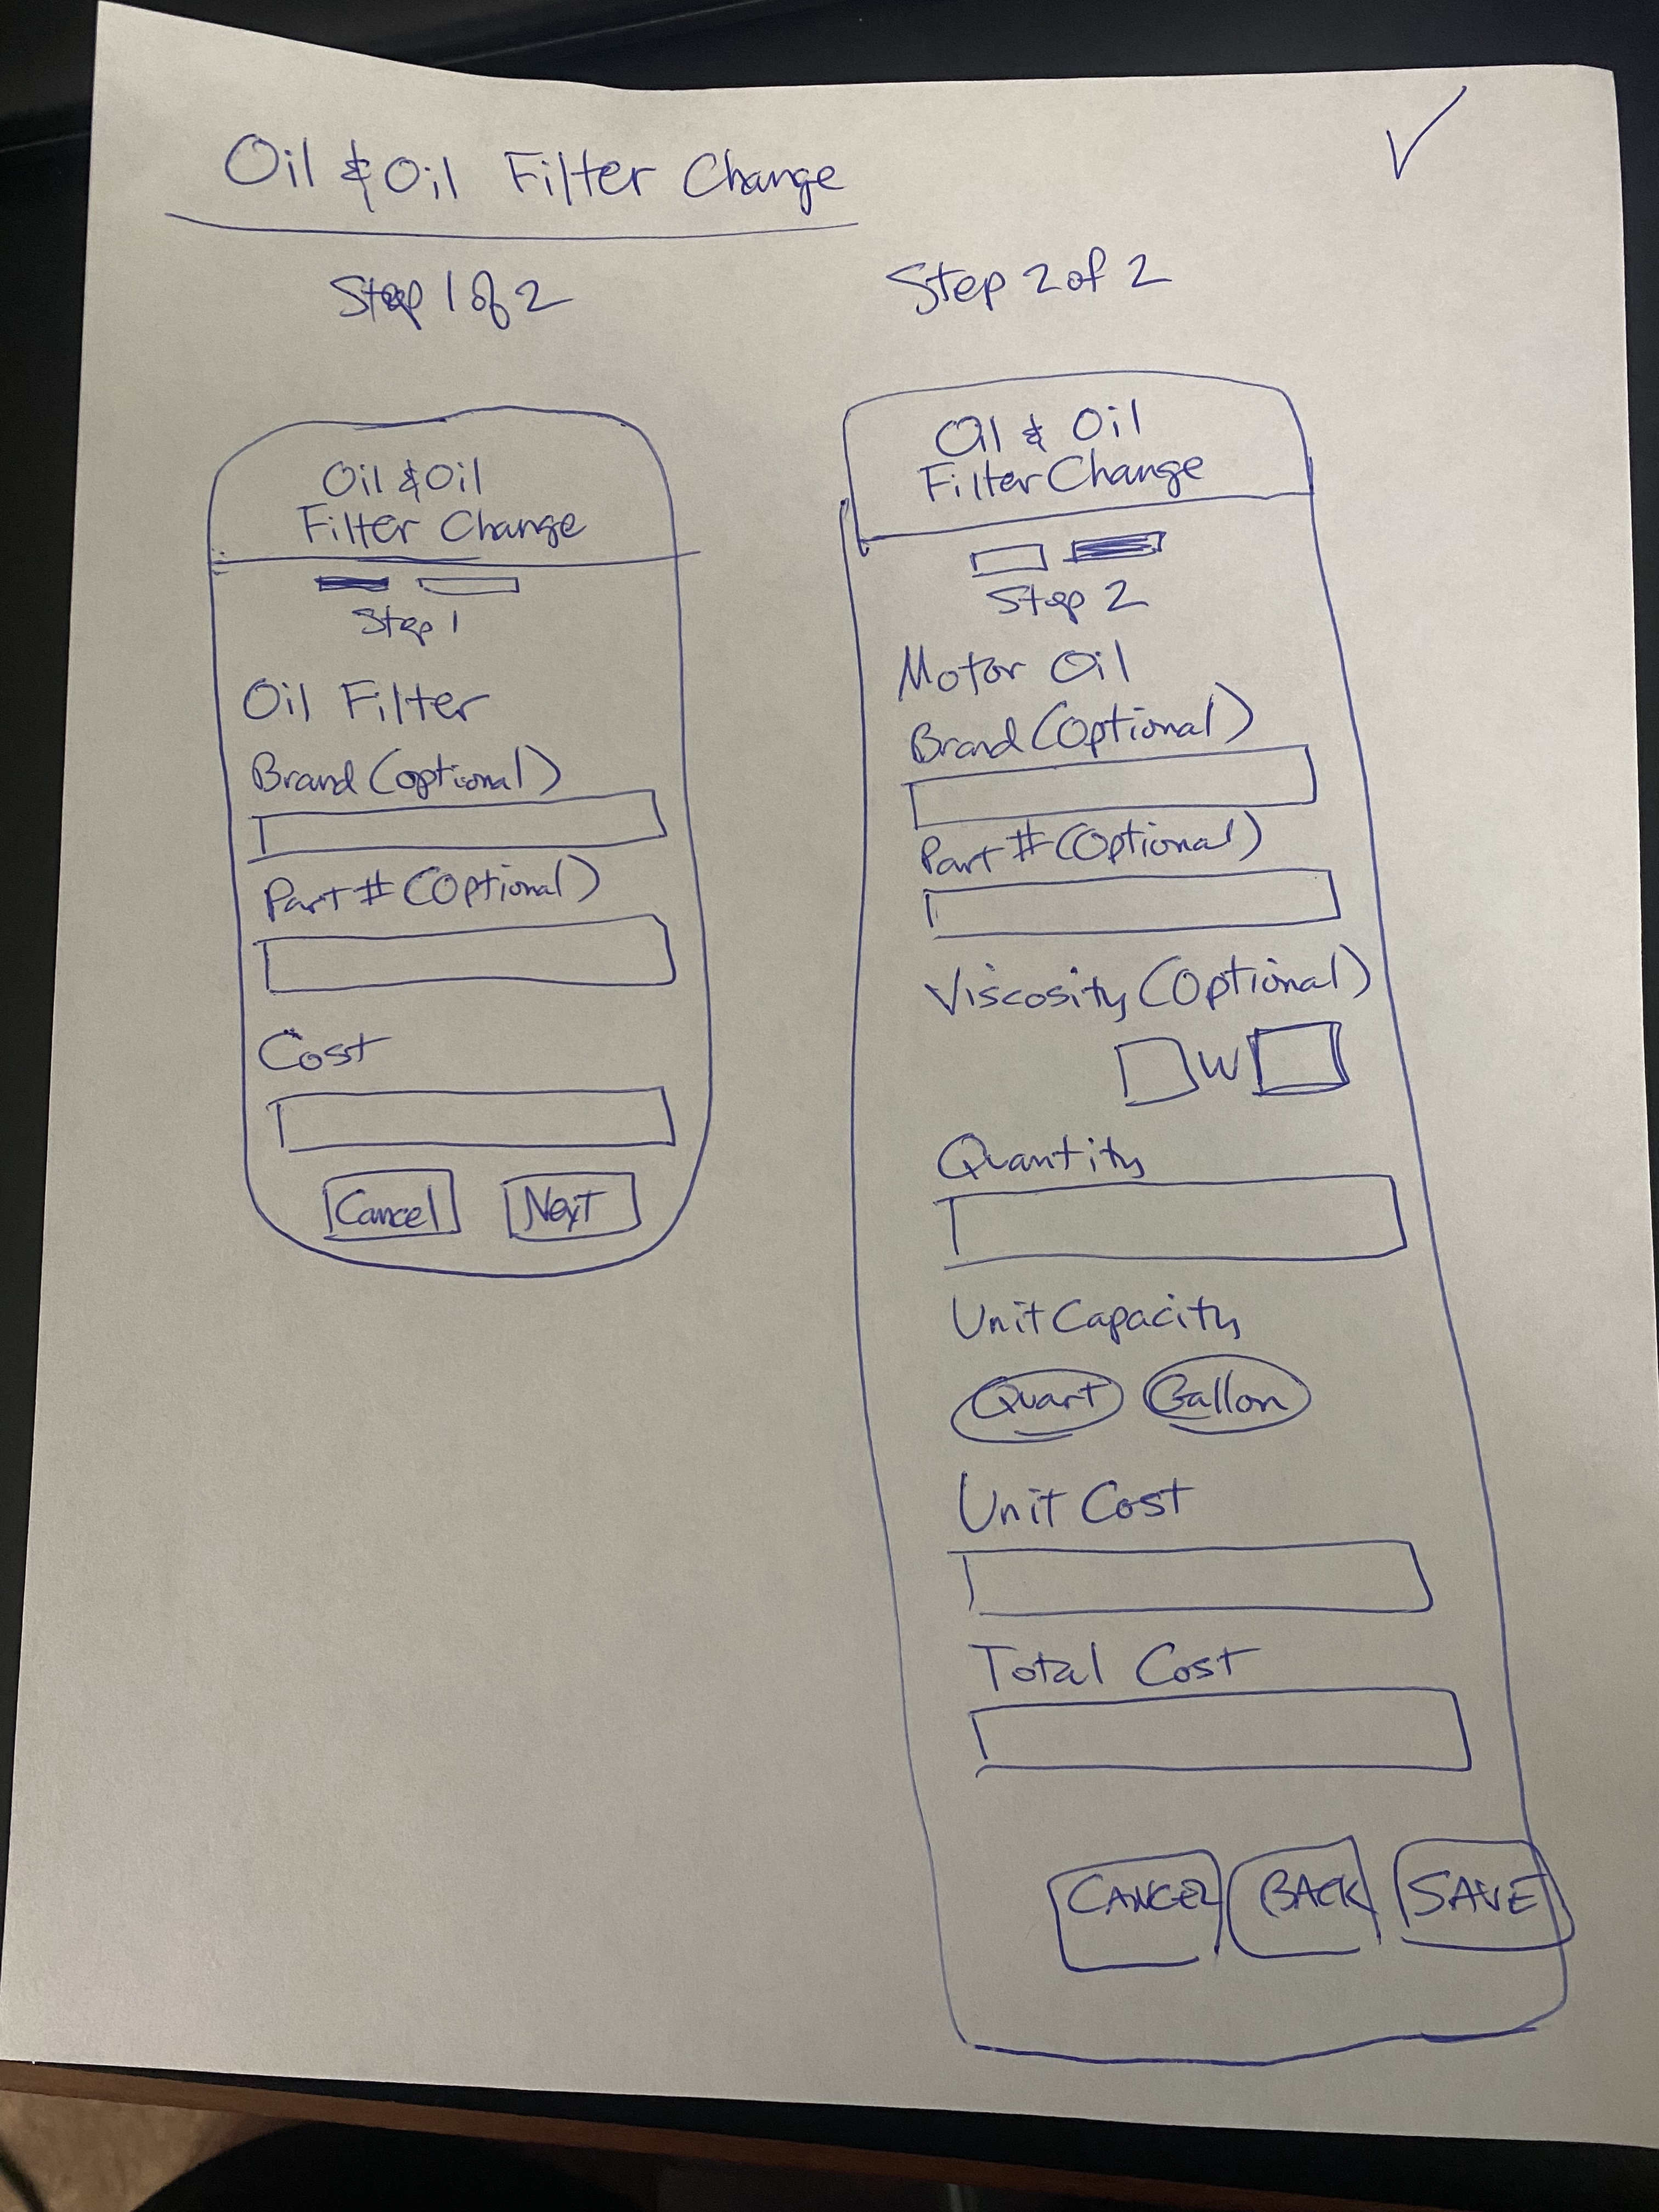 Oil & Oil Filter Change
Step 1 of 2
Oil & Oil
Filter Change
Step 1
Oil Filter
Brand (optional)
Part # (Optional)
Cost
Cancel Next
Step 2 of 2
Oil & Oil
Filter Change
Step 2
Motor Oil
Brand (Optional)
Part # (Optional)
Viscosity (Optional)
W
Quantity
Unit Capacity
Quart Gallon
Unit Cost
Total Cost
CANCEL BACK SAVE